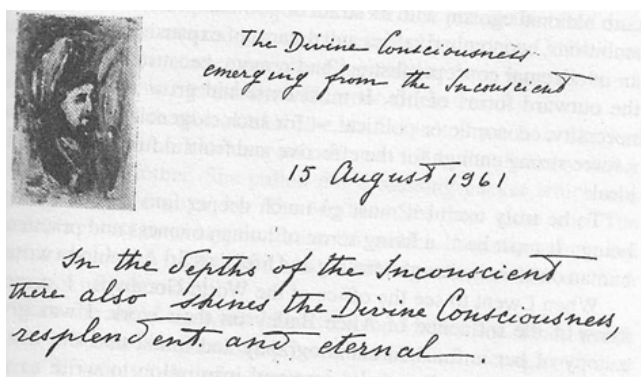 The Divine Consciousness
emerging from the Inconscient
15 August 1961
In the depths of the Inconscient
there also shines the Divine Consciousness,
resplendent and eternal